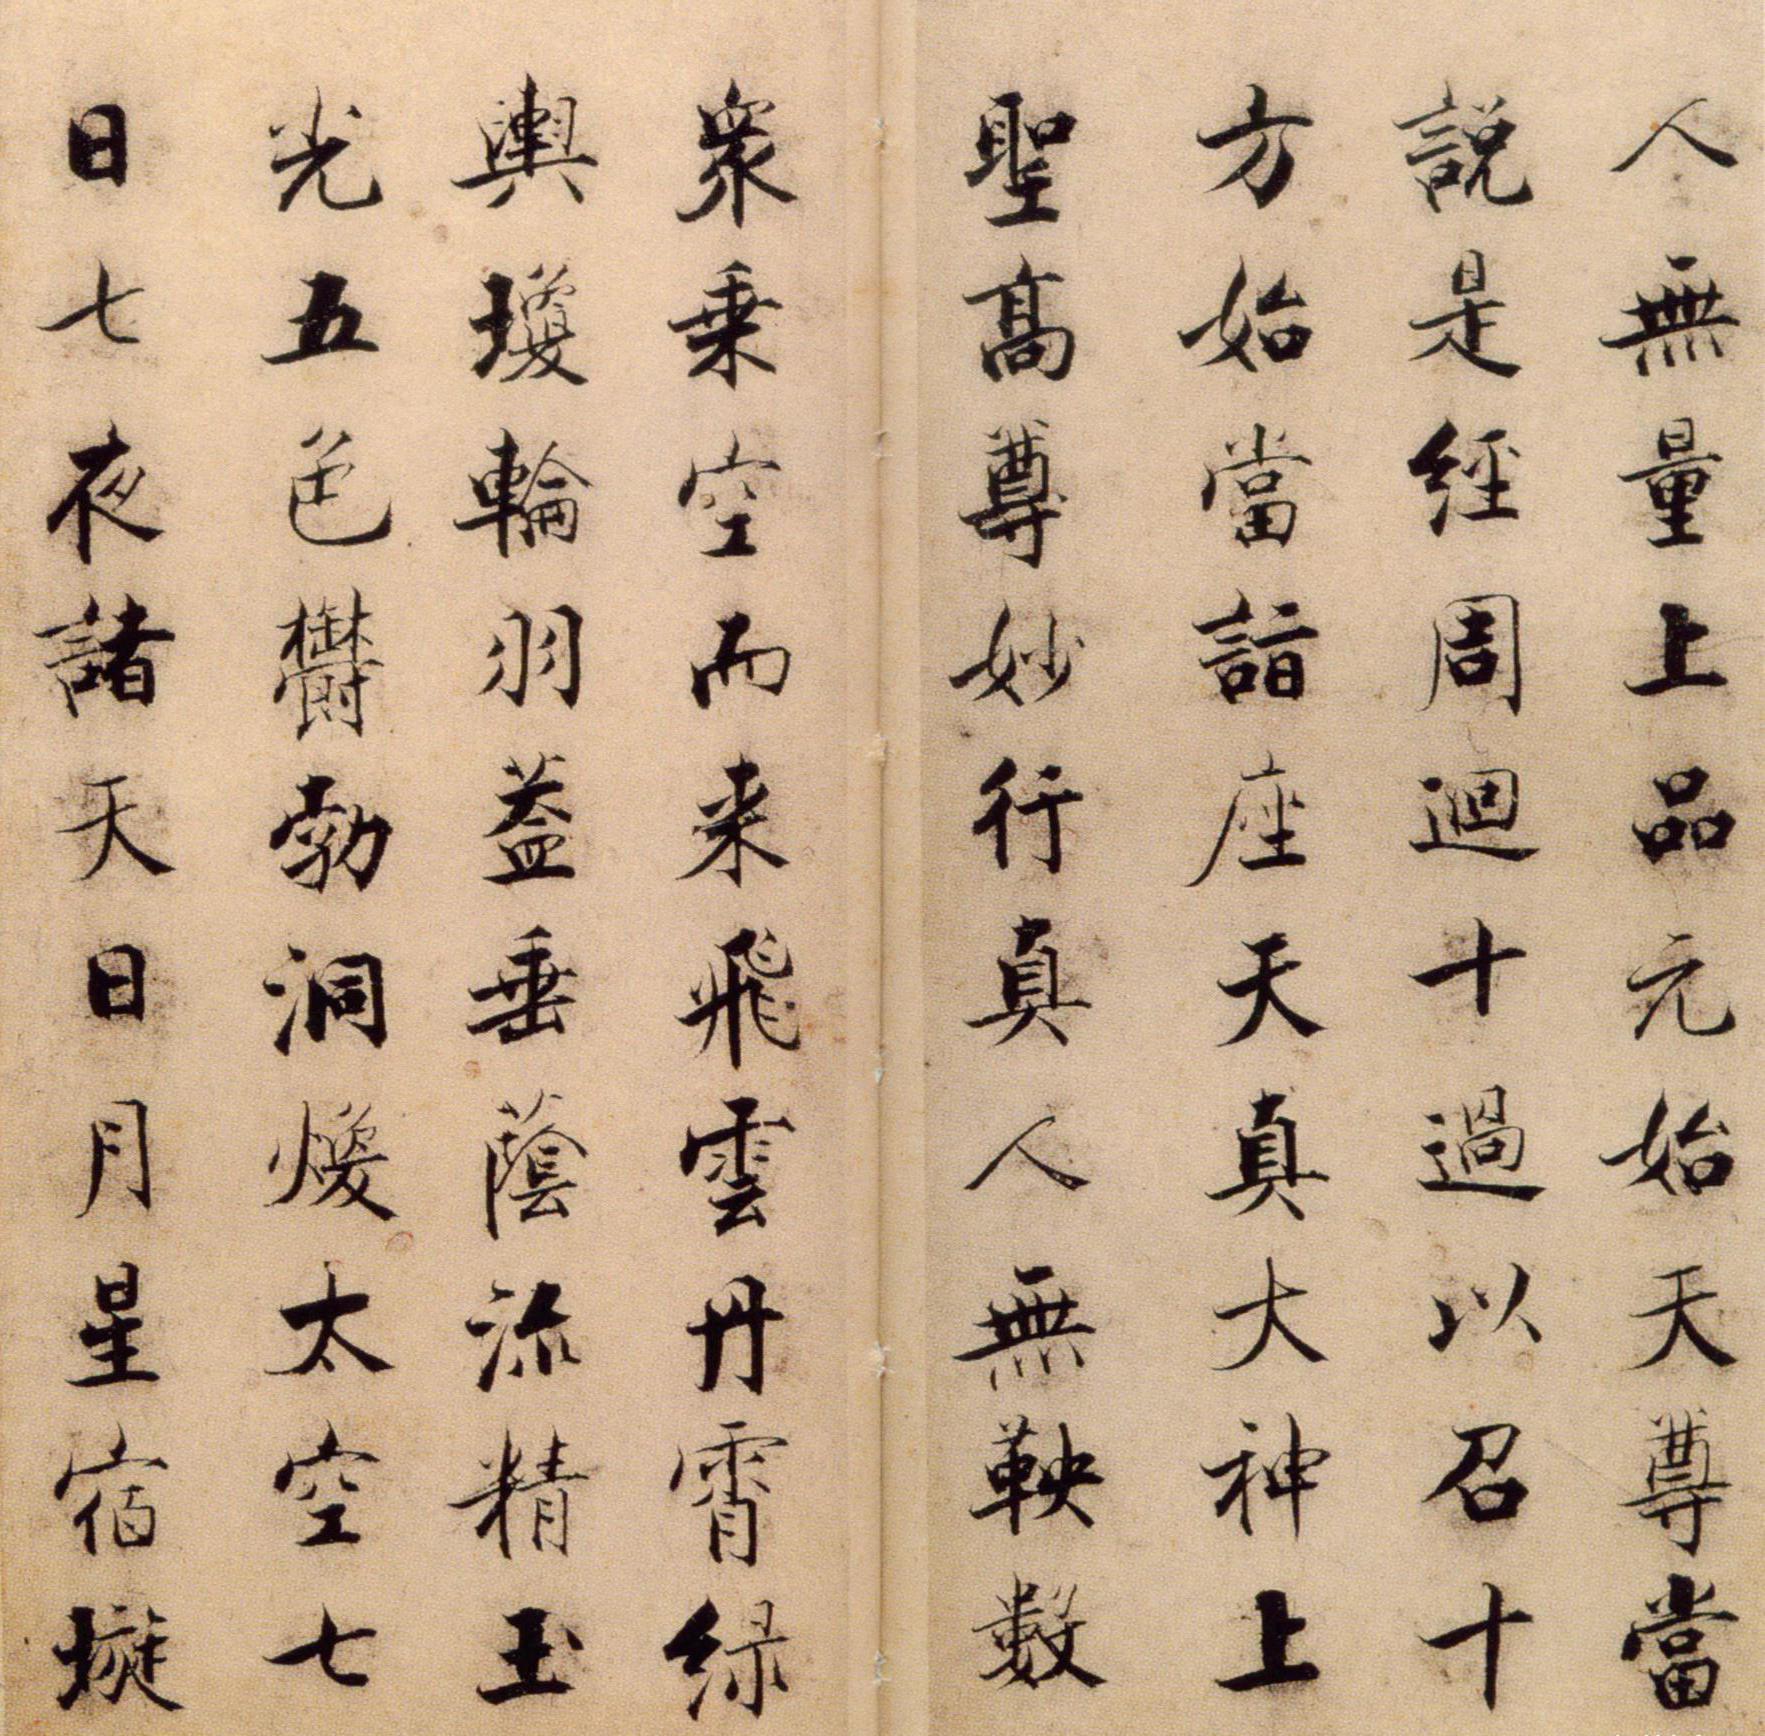 人無量上品元始天尊當
説是經周迴十過以召十
方始當詣座天真大神上
聖高尊妙行真人無鞅數
衆乗空而来飛雲丹霄緑
輿瓊輪羽蓋垂蔭流精玉
光五色欝勃洞煥太空七
日七夜諸天日月星宿璇